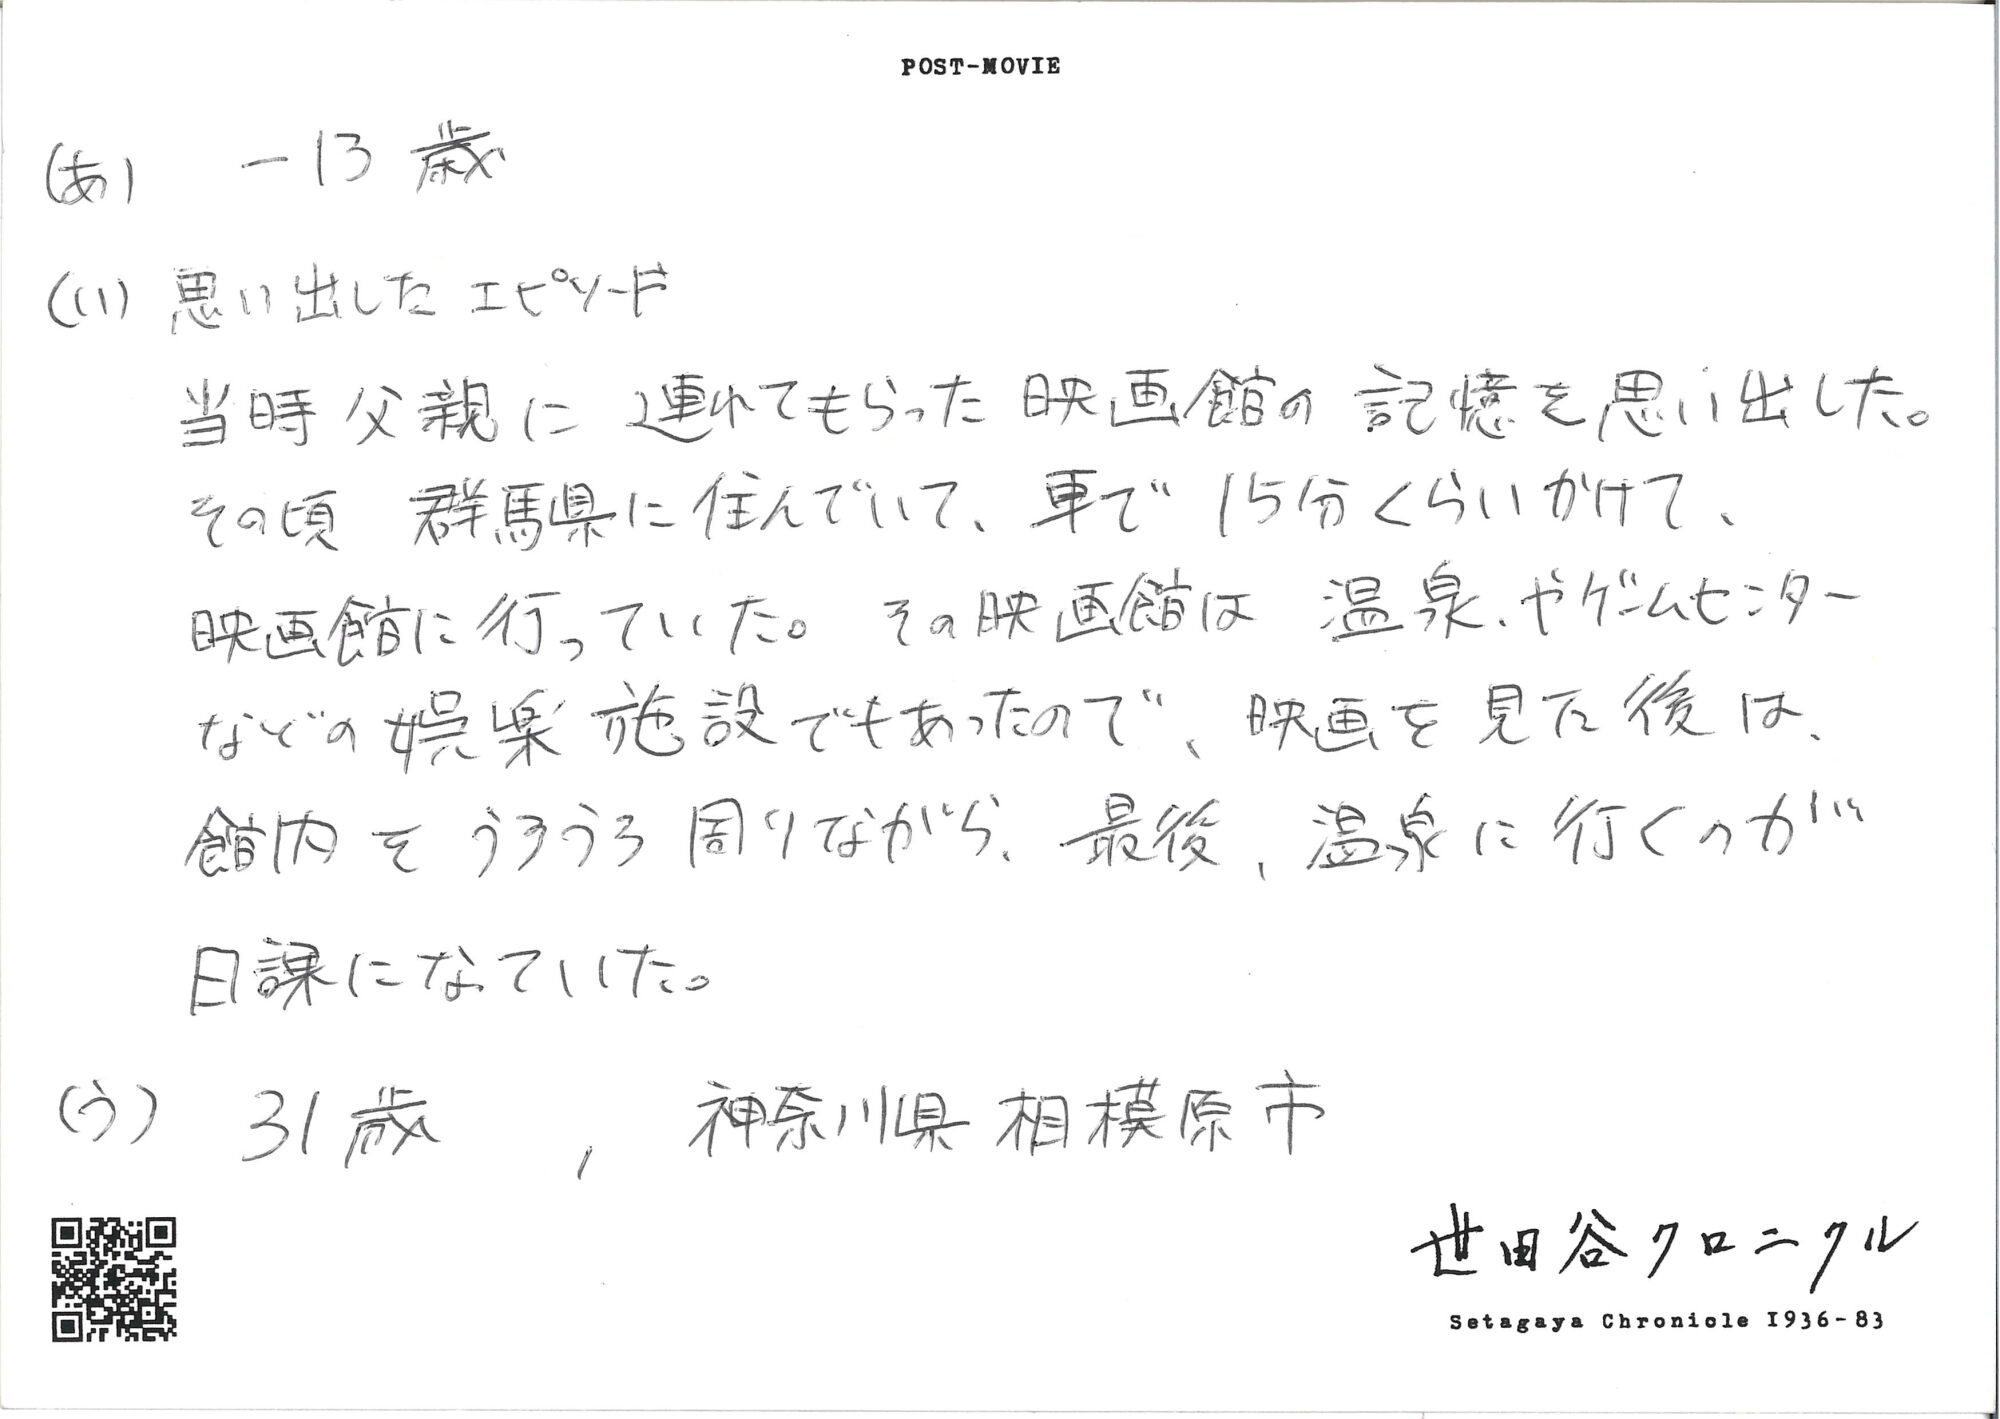 POST-MOVIE
(あ) -13歳
(い) 思い出したエピソード
当時父親に連れてもらった映画館の記憶を思い出した。
その頃群馬県に住んでいて、車で15分くらいかけて、
映画館に行っていた。その映画館は温泉、やゲームセンター
などの娯楽施設でもあったので、映画を見た後は、
館内をうろうろ周りながら、最後、温泉に行くのが
日課になていた。
(う) 31歳 , 神奈川県相模原市
世田谷クロニクル
Setagaya Chronicle 1936-83